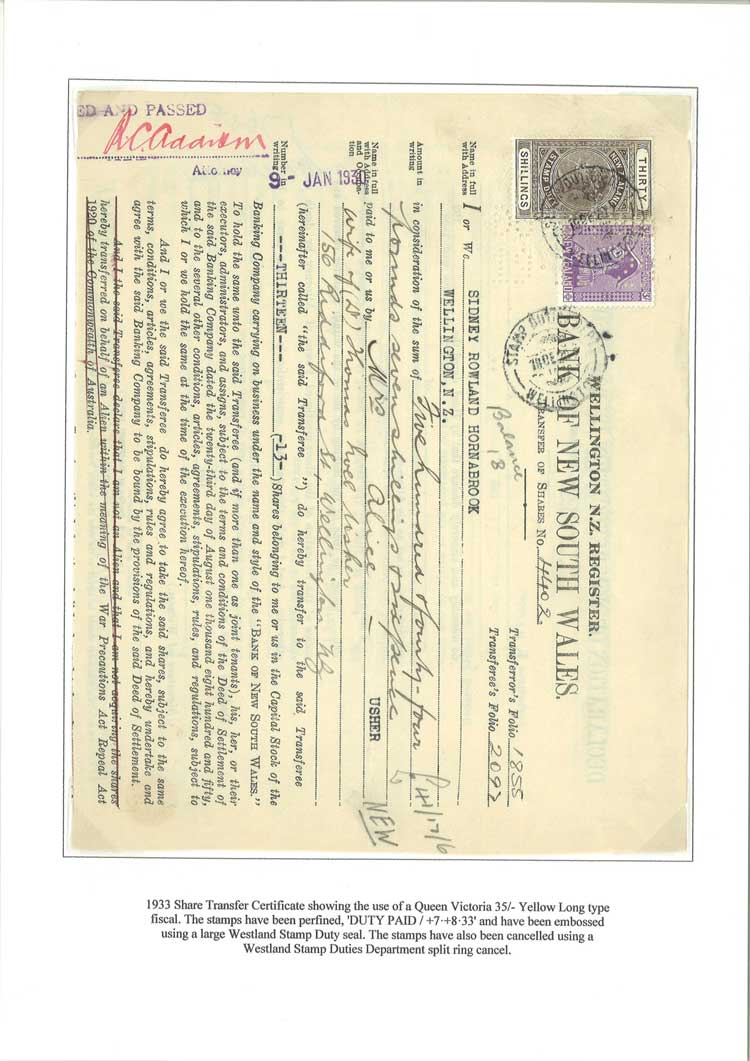 WELLINGTON N.Z. REGISTER.
BANK OF NEW SOUTH WALES.
TRANSFER OF SHARES No. 4402
Balance 13
Transferror's Folio 1855
Transferee's Folio 2092
THIRTY
NEW ZEALAND
STAMP DUTY
SHILLINGS
Name in full with Address
I or We SIDNEY ROWLAND HORNABROOK
WELLINGTON, N.Z.
Amount in writing
in consideration of the sum of Five hundred & forty-four
pounds seven shillings & sixpence
Name in full with Address and Occupation
paid to me or us by Mrs Alice USHER
NEW
wife of (Dr) Thomas Usher
150 Riddiford St, Wellington NZ
(hereinafter called "the said Transferee") do hereby transfer to the said Transferee
Number in writing
---THIRTEEN--- (-13-) Shares belonging to me or us in the Capital Stock of the
Banking Company carrying on business under the name and style of the "BANK OF NEW SOUTH WALES."
To hold the same unto the said Transferee (and if more than one as joint tenants), his, her, or their
executors, administrators, and assigns, subject to the terms and conditions of the Deed of Settlement of
the said Banking Company dated the twenty-third day of August one thousand eight hundred and fifty,
and to the several other conditions, articles, agreements, stipulations, rules, and regulations, subject to
which I or we hold the same at the time of the execution hereof.
And I or we the said Transferee do hereby agree to take the said shares, subject to the same
terms, conditions, articles, agreements, stipulations, rules and regulations, and hereby undertake and
agree with the said Banking Company to be bound by the provisions of the said Deed of Settlement.
And I the said Transferee declare that I am not an Alien and that I am not acquiring the shares
hereby transferred on behalf of an Alien within the meaning of the War Precautions Act Repeal Act
1920 of the Commonwealth of Australia.
ED AND PASSED
Attorney
9- JAN 193
1933 Share Transfer Certificate showing the use of a Queen Victoria 35/- Yellow Long type
fiscal. The stamps have been perfined, 'DUTY PAID / +7·+8·33' and have been embossed
using a large Westland Stamp Duty seal. The stamps have also been cancelled using a
Westland Stamp Duties Department split ring cancel.